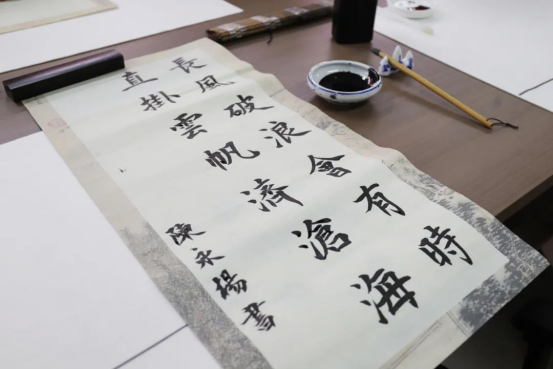 長風破浪會有時
直掛雲帆濟滄海
陳永楊書